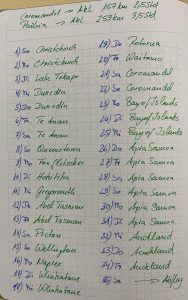 Coromandel → Akl 157 km 2,5Std
Paihia → Akl 239km 3,5Std
1) So Christchurch
2) Mo Christchurch
3) Di Lake Tekapo
4) Mi Dunedin
5) Do Dunedin
6) Fr Te Anau
7) Sa Te Anau
8) So Queenstown
9) Mo Fox Gletscher
10) Di Hokitika
11) Mi Greymouth
12) Do Abel Tasman
13) Fr Abel Tasman
14) Sa Picton
15) So Wellington
16) Mo Napier
17) Di Whakatane
18) Mi Whakatane
19) Do Rotorua
20) Fr Waitomo
21) Sa Coromandel
22) So Coromandel
23) Mo Bay of Islands
24) Di Bay of Islands
25) Mi Bay of Islands
26) Do Apia Samoa
27) Fr Apia Samoa
28) Sa Apia Samoa
29) So Apia Samoa
30) Mo Apia Samoa
31) Di Apia Samoa
32) Mi Auckland
33) Do Auckland
34) Fr Auckland
35) Sa →